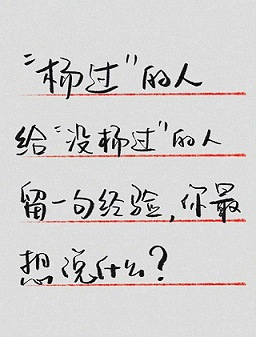 “杨过”的人
给“没杨过”的人
留一句经验,你最
想说什么?